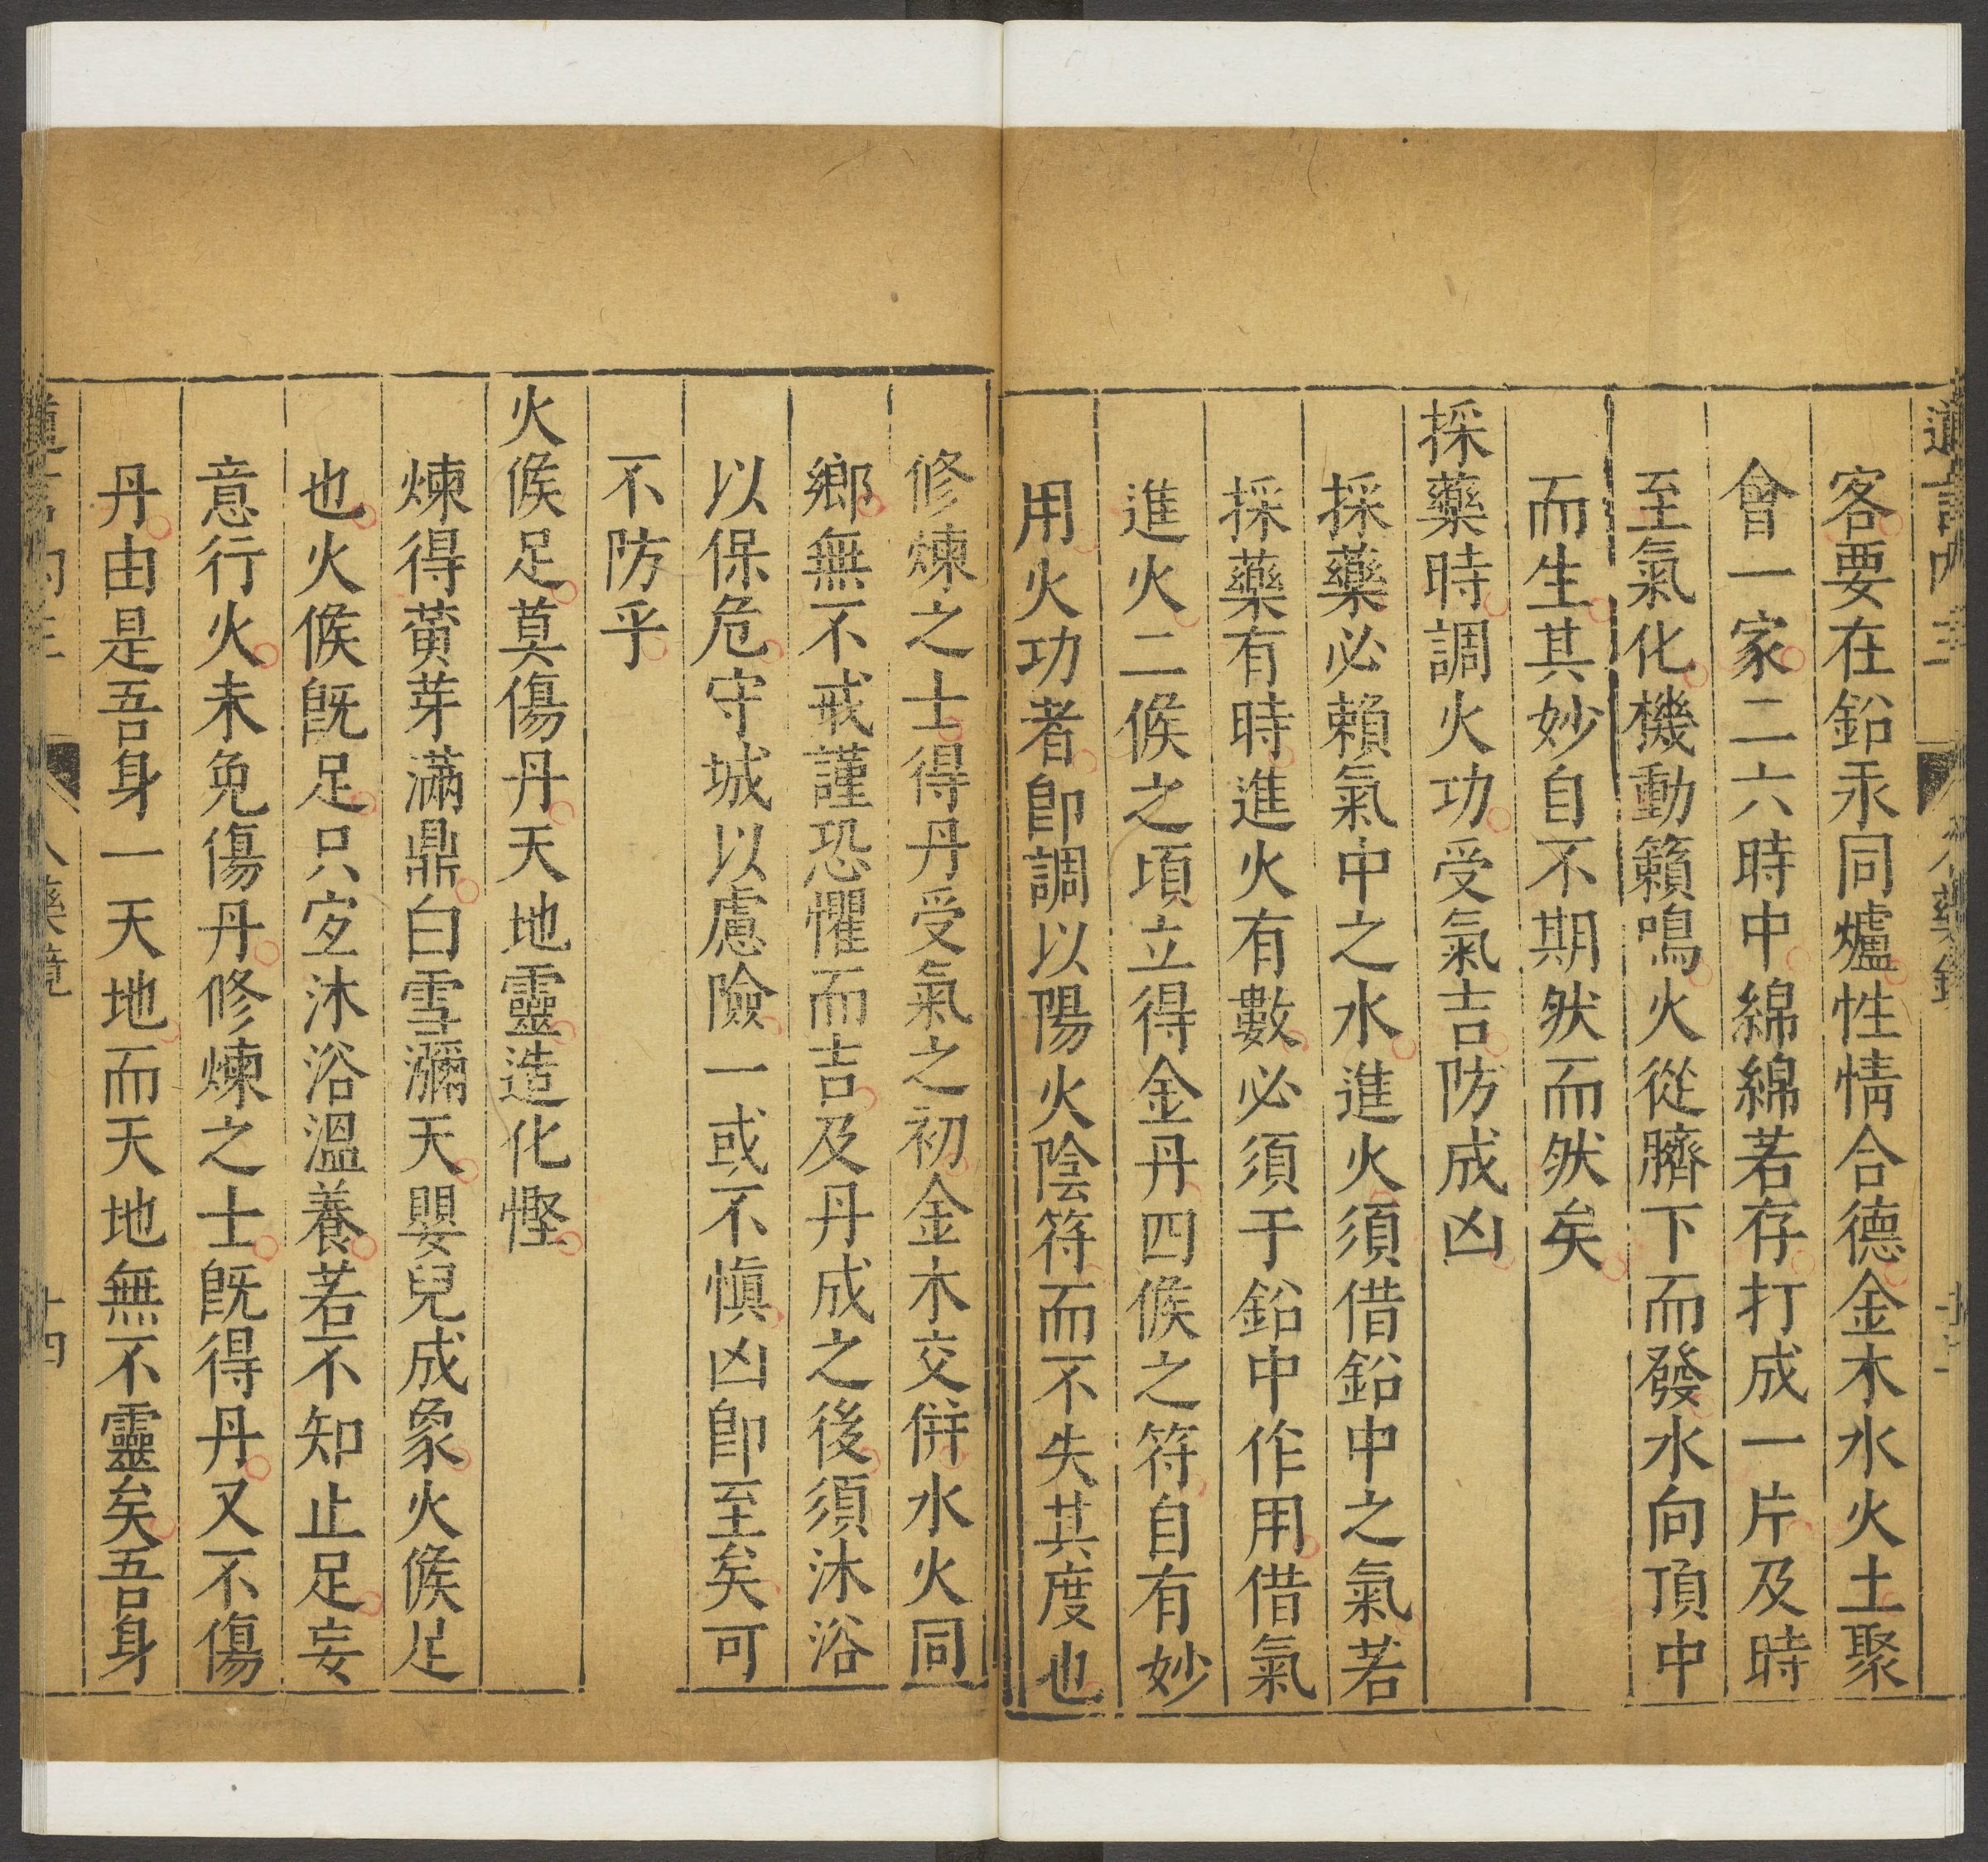 客要在鉛汞同爐性情合德金木水火土聚
會一家二六時中綿綿若存打成一片及時
至氣化機動籟鳴火從臍下而發水向頂中
而生其妙自不期然而然矣
採藥時調火功受氣吉防成凶
採藥必賴氣中之水進火須借鉛中之氣若
採藥有時進火有數必須于鉛中作用借氣
進火二候之頃立得金丹四候之符自有妙
用火功者卽調以陽火陰符而不失其度也
修煉之士得丹受氣之初金木交併水火同
鄉無不戒謹恐懼而吉及丹成之後須沐浴
以保危守城以慮險一或不慎凶卽至矣可
不防乎
火候足莫傷丹天地靈造化慳
煉得黃芽滿鼎白雪瀰天嬰兒成象火候足
也火候旣足只宜沐浴溫養若不知止足妄
意行火未免傷丹修煉之士旣得丹又不傷
丹由是吾身一天地而天地無不靈矣吾身
十四